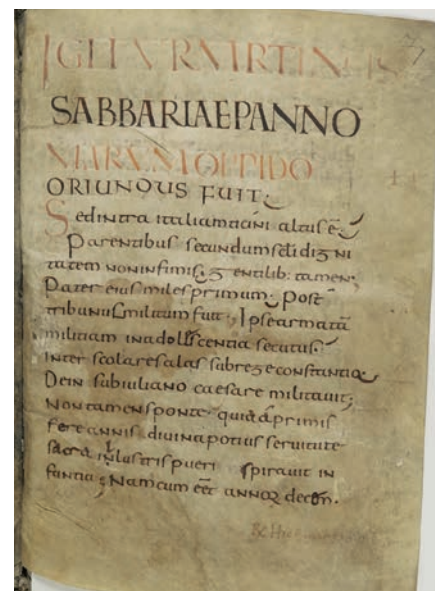 IGITUR MARTINUS
SABBARIAE PANNO
NIARUM OPPIDO
ORIUNDUS FUIT;
Sed intra italiam ticini altus ē;
Parentibus secundum scli digni
tatem non infimis; gentilib: tamen;
Pater eius miles primum; Post
tribunus militum fuit; Ipse armatā
militiam in adoliscentia secutus;
inter scolares alas sub rege constantio;
Dein sub iuliano caesare militavit;
Non tamen sponte quia a primis
fere annis divina potius servitute
sacra inlustris pueri spiravit in
fantia; Nam cum eēt annoꝝ decem.